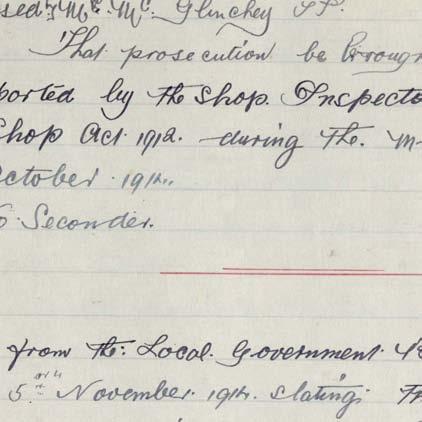 sed by Mr. Mc. Glinchey J.P.
That prosecution be brough
ported by the Shop. Inspecto
Shop Act. 1912. during the. m
October. 1914.
o Seconder.
from the: Local. Government.
5th November. 1914. stating: